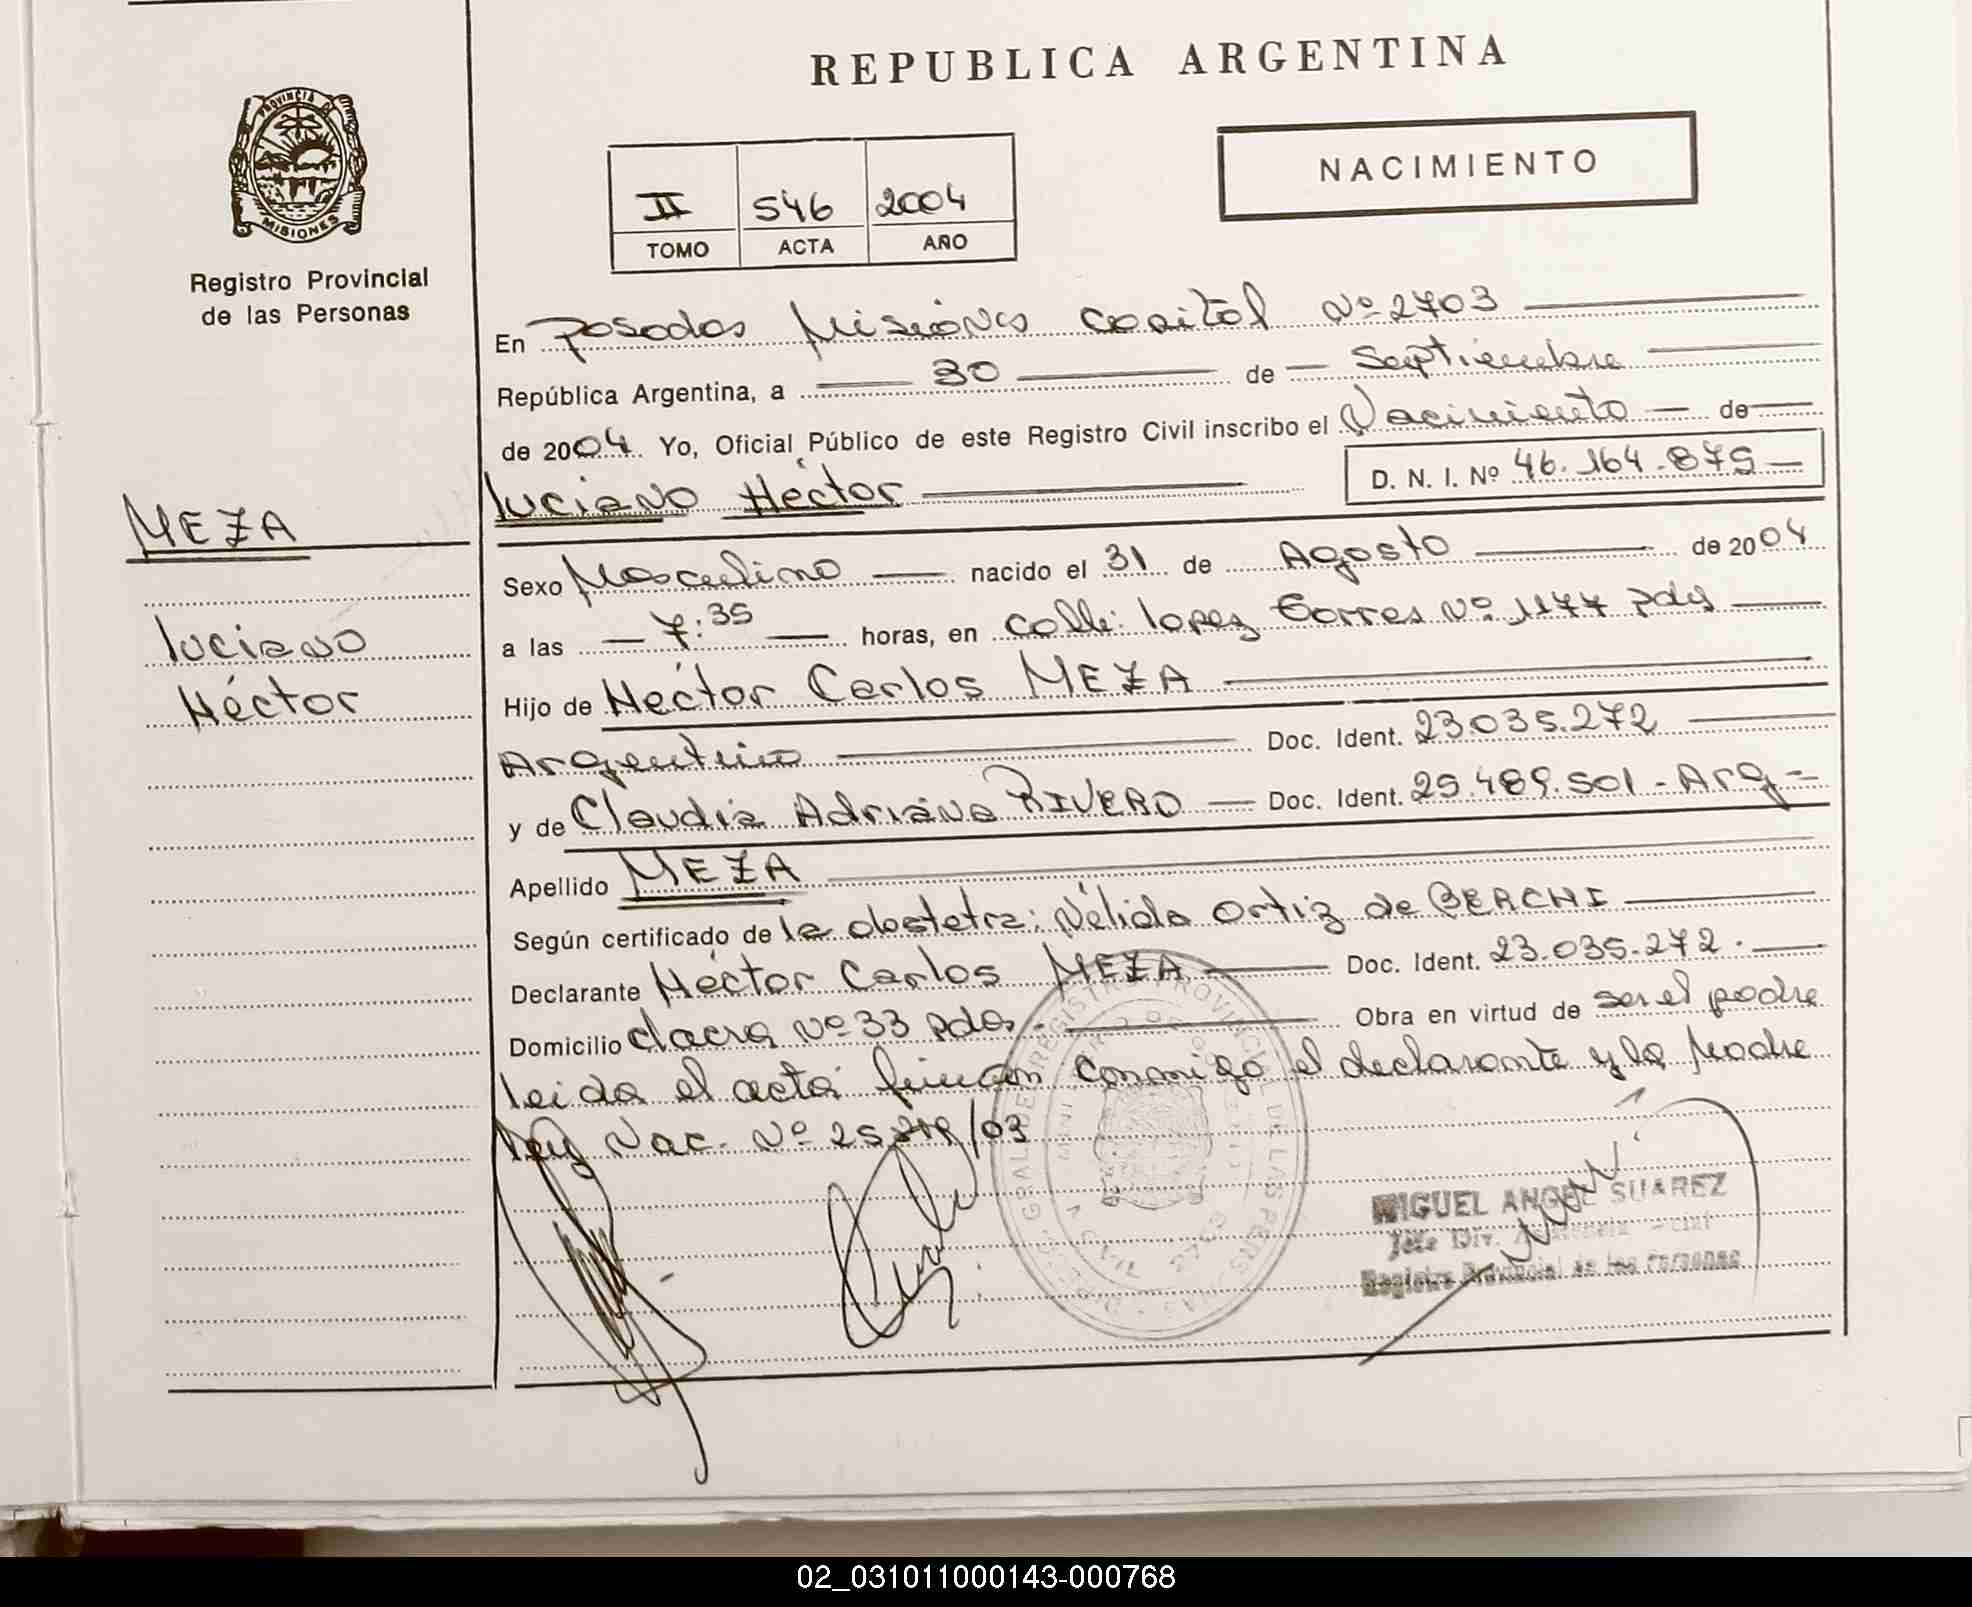 REPUBLICA ARGENTINA
PROVINCIA DE
MISIONES
Registro Provincial
de las Personas
NACIMIENTO
II 546 2004
TOMO ACTA AÑO
En Posadas Misiones Capital Nº 2703
República Argentina, a 30 de Septiembre
de 2004 Yo, Oficial Público de este Registro Civil inscribo el Nacimiento de
Luciano Héctor D. N. I. Nº 46.164.875
MEZA
Sexo Masculino nacido el 31 de Agosto de 2004
Luciano
Héctor
a las 7:35 horas, en Calle: Lopez Torres Nº 1177 pdas
Hijo de Héctor Carlos MEZA
Argentino Doc. Ident. 23.035.272
y de Claudia Adriana RIVERO Doc. Ident. 25.489.501 - Arg
Apellido MEZA
Según certificado de la obstetra: Nélida Ortiz de BERCHI
Declarante Héctor Carlos MEZA Doc. Ident. 23.035.272.
Domicilio chacra Nº 33 pdas. Obra en virtud de ser el padre
leida el acta firman conmigo el declarante y la Madre
Ley Nac. Nº 25.819/03
MIGUEL ANGEL SUAREZ
Jefe Div.
Registro Provincial de las Personas
02_031011000143-000768